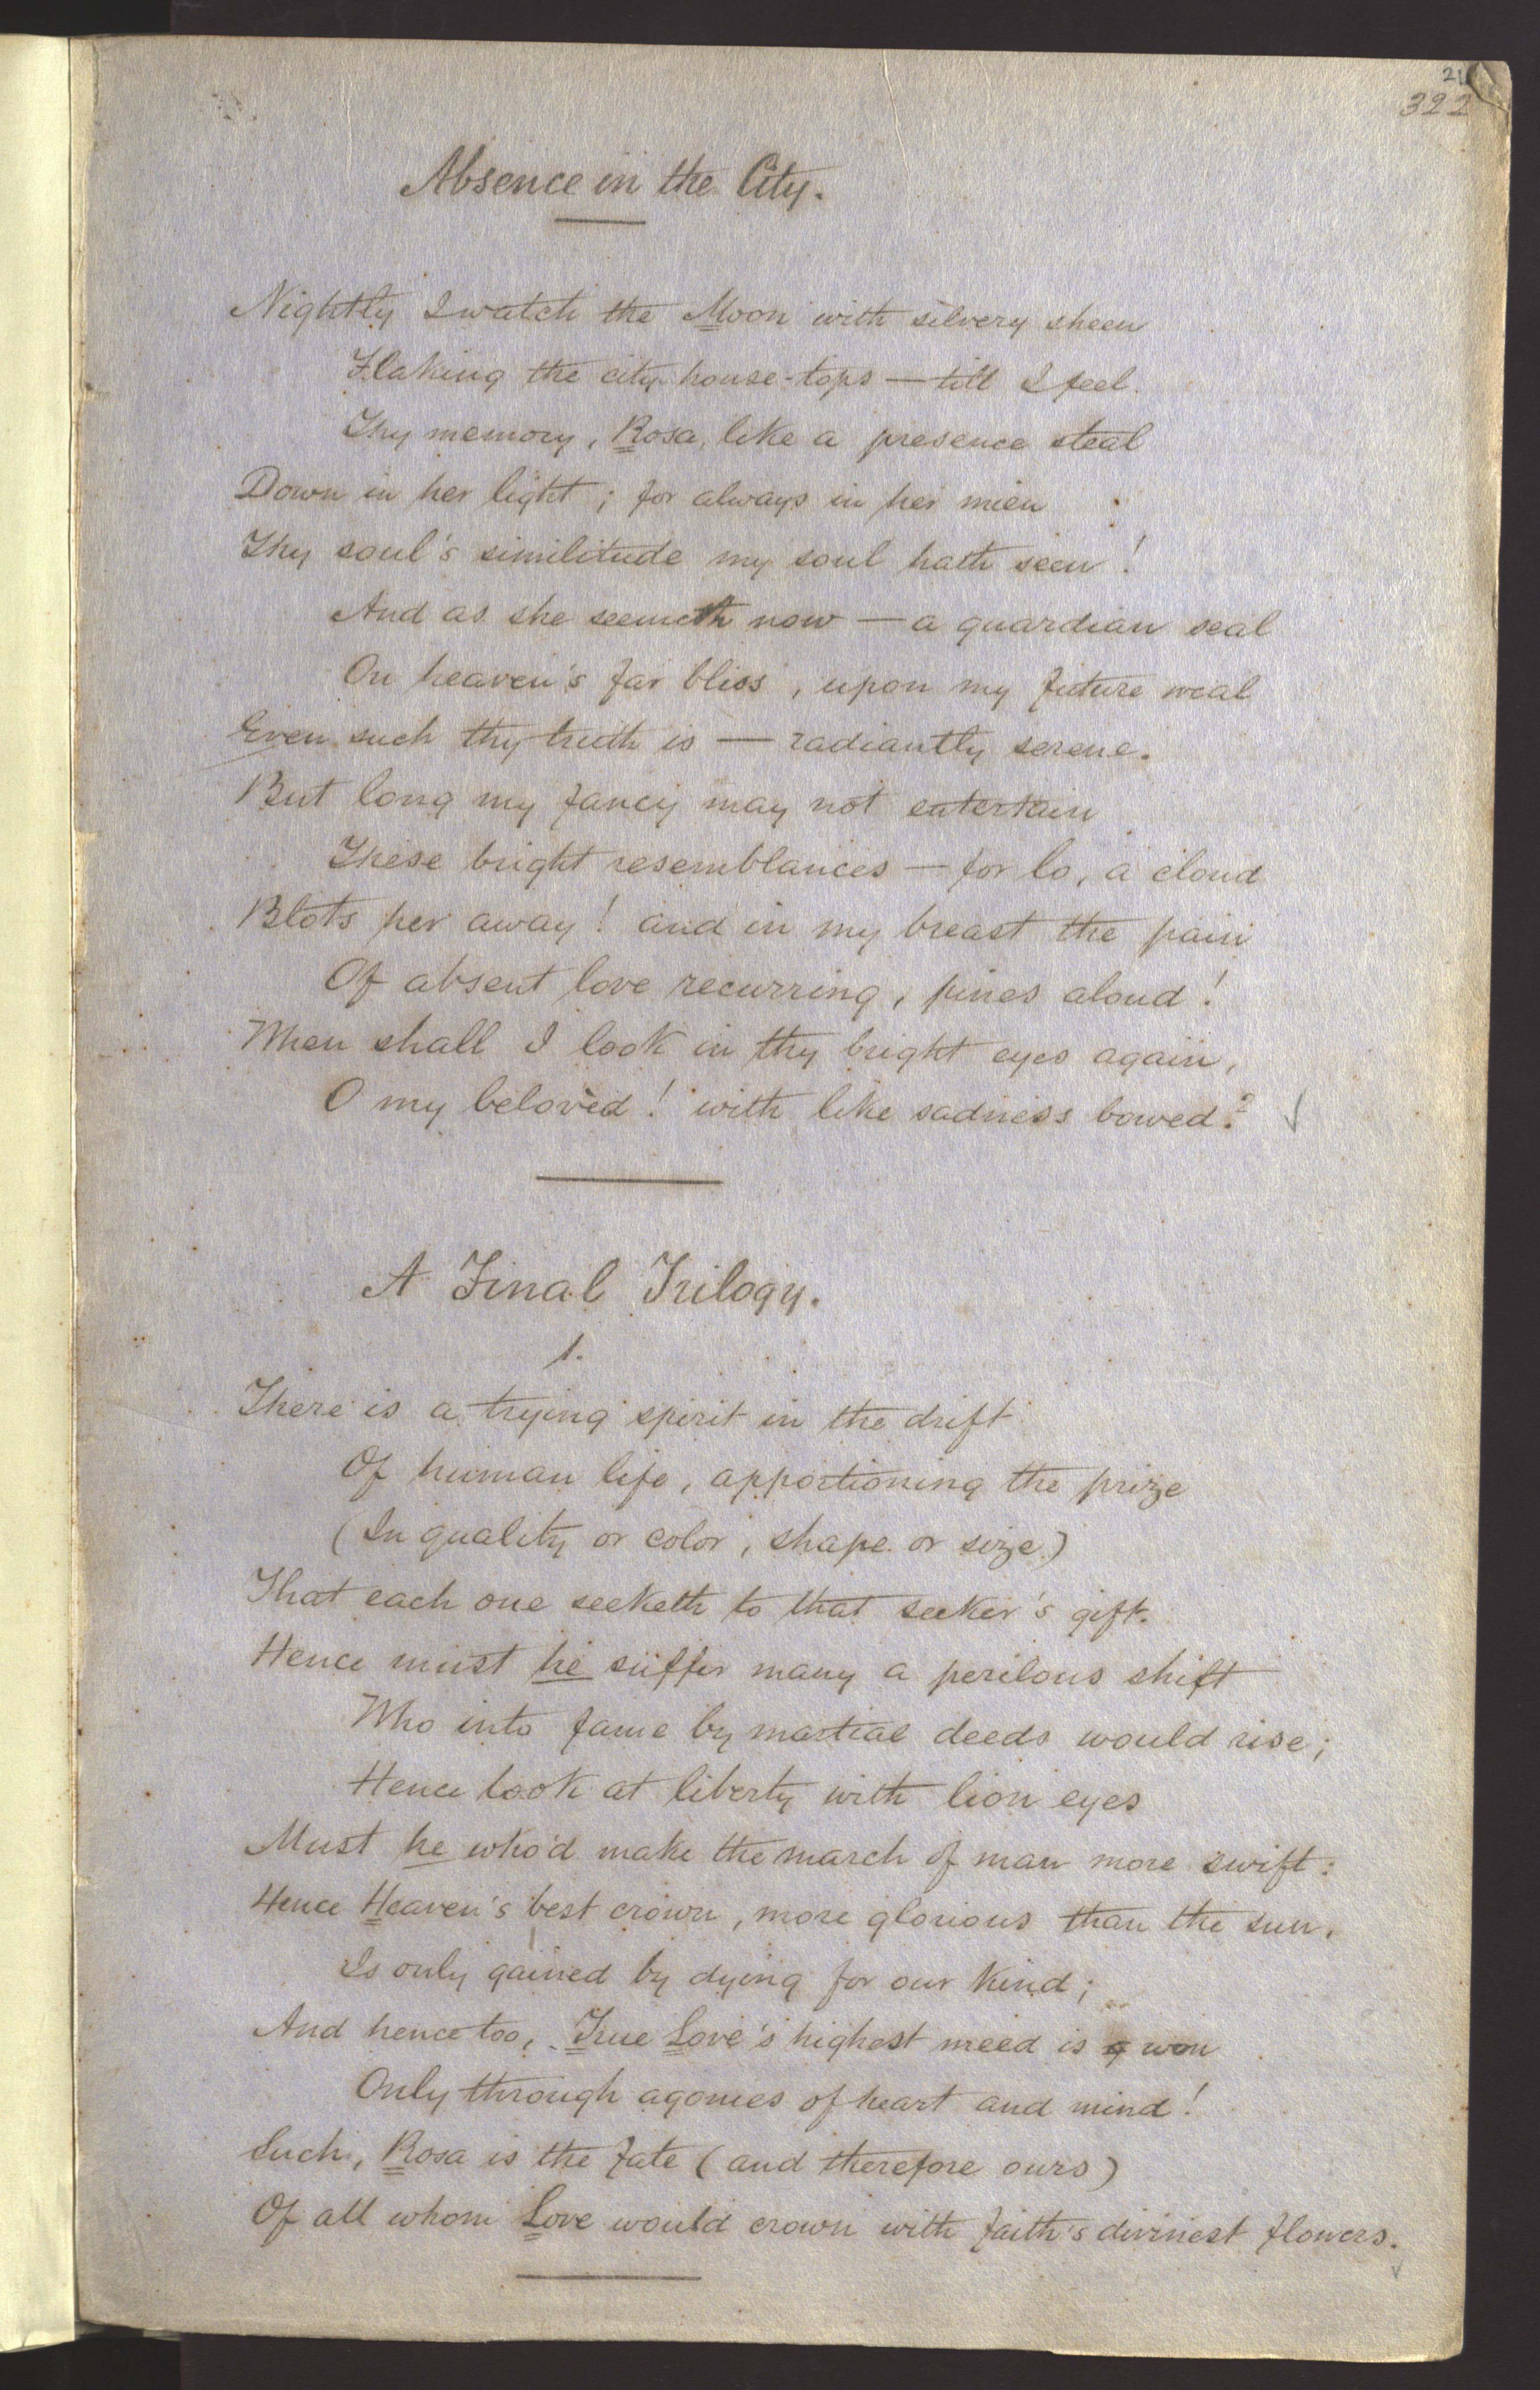 21
322
Absence in the City.
Nightly I watch the Moon with silvery sheen
Flaking the city house-tops — till I feel
Thy memory, Rosa, like a presence steal
Down in her light; for always in her mien
Thy soul's similitude my soul hath seen!
And as she seemeth now — a guardian seal
On heaven's far bliss, upon my future weal
Even such thy truth is — radiantly serene.
But long my fancy may not entertain
These bright resemblances — for lo, a cloud
Blots her away! and in my breast the pain
Of absent love recurring, pines aloud!
When shall I look in thy bright eyes again,
O my belovèd! with like sadness bowed?
A Final Trilogy.
1.
There is a trying spirit in the drift
Of human life, apportioning the prize
(In quality or color, shape or size)
That each one seeketh to that seeker's gift.
Hence must he suffer many a perilous shift
Who into fame by martial deeds would rise;
Hence look at liberty with lion eyes
Must he who'd make the march of man more swift:
Hence Heaven's best crown, more glorious than the sun,
Is only gained by dying for our kind;
And hence too, True Love's highest meed is won
Only through agonies of heart and mind!
Such, Rosa is the fate (and therefore ours)
Of all whom Love would crown with faith's divinest flowers.